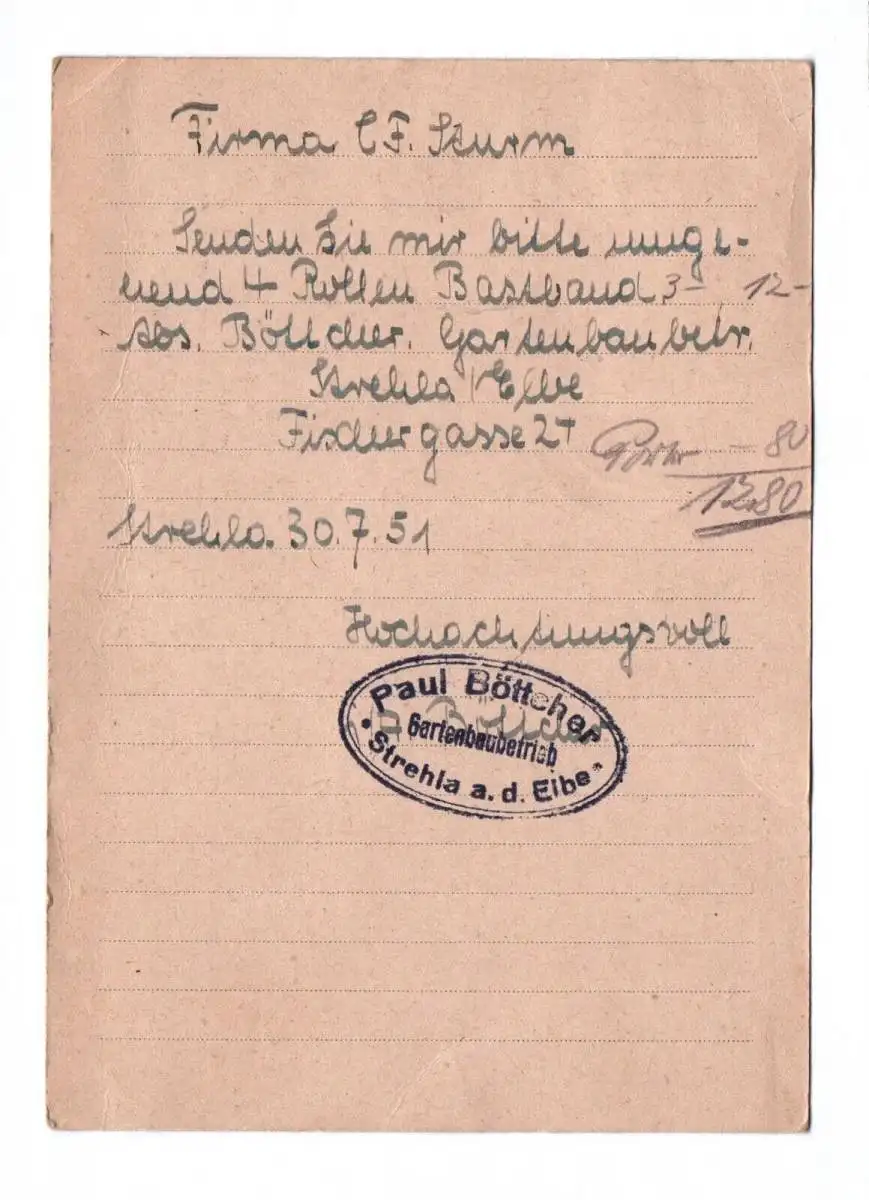 Firma C F. Sturm
Senden Sie mir bitte umge-
hend 4 Rollen Bastband 3- 12-
Abs. Böttcher. Gartenbaubetr.
Strehla / Elbe
Fischergasse 27
Porto - 80
12.80
Strehla. 30.7.51
Hochachtungsvoll
Paul Böttcher
Böttcher
Gartenbaubetrieb
Strehla a. d. Elbe